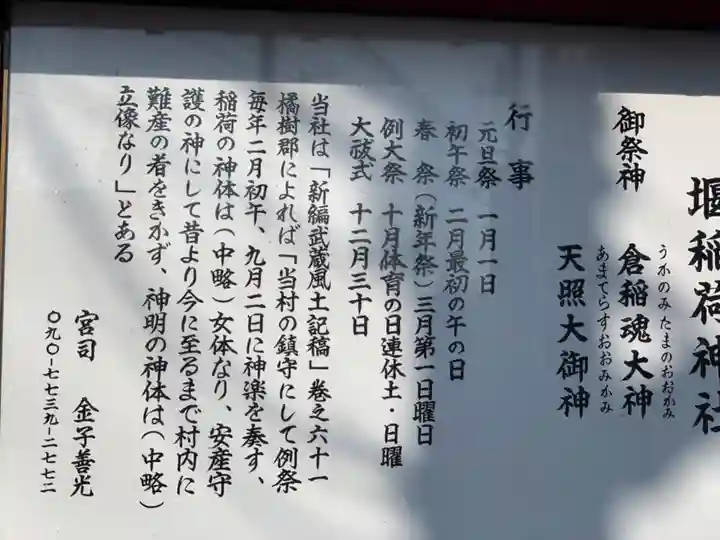 堰稲荷神社
御祭神
うかのみたまのおおかみ
倉稲魂大神
あまてらすおおみかみ
天照大御神
行事
元旦祭 一月一日
初午祭 二月最初の午の日
春祭(新年祭)三月第一日曜日
例大祭 十月体育の日連休土・日曜
大祓式 十二月三十日
当社は「新編武蔵風土記稿」巻之六十一
橘樹郡によれば「当村の鎮守にして例祭
毎年二月初午、九月二日に神楽を奏す、
稲荷の神体は(中略)女体なり、安産守
護の神にして昔より今に至るまで村内に
難産の者をきかず、神明の神体は(中略)
立像なり」とある
宮司 金子善光
〇九〇-七七三九-二七七二